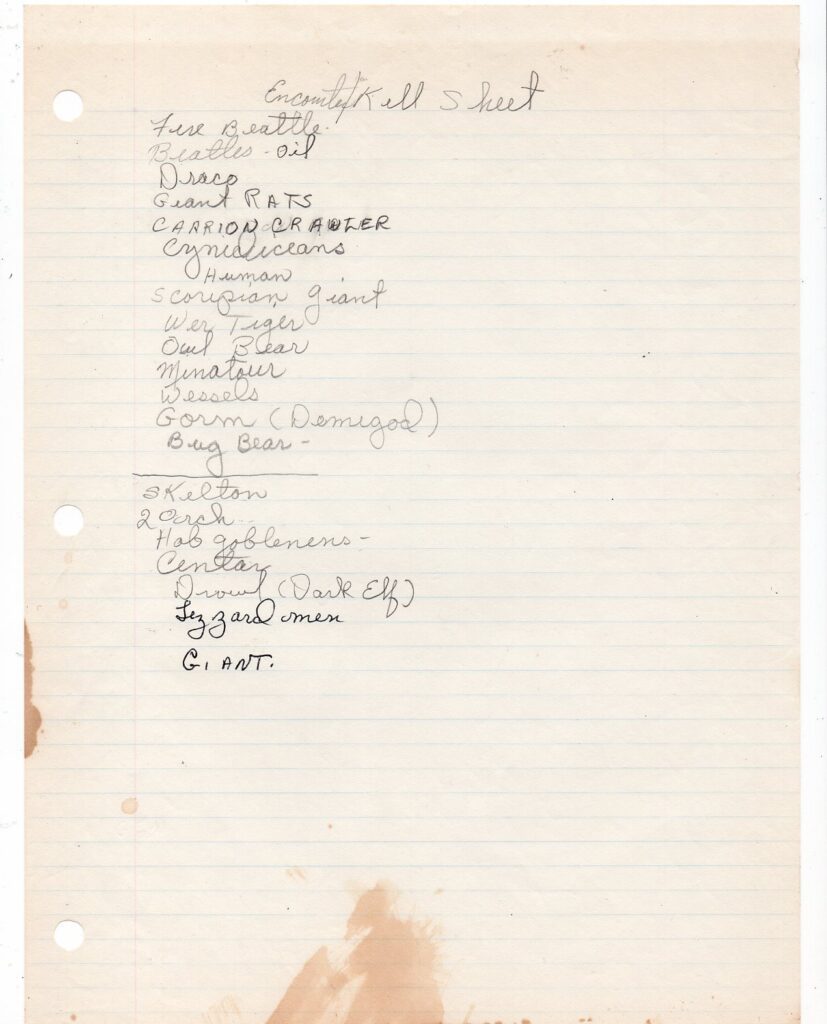 Encounter/Kill Sheet
Fire Beattle
Beatles - Oil
Draco
Giant RATS
CARRION CRAWLER
Cynidiceans
Human
Scorpian giant
Wer Tiger
Owl Bear
Minatour
Wessels
Gorm (Demigod)
Bug Bear -
Skelton
2 Orch
Hob goblenens -
Centar
Drowl (Dark Elf)
Lizzard men
GIANT.